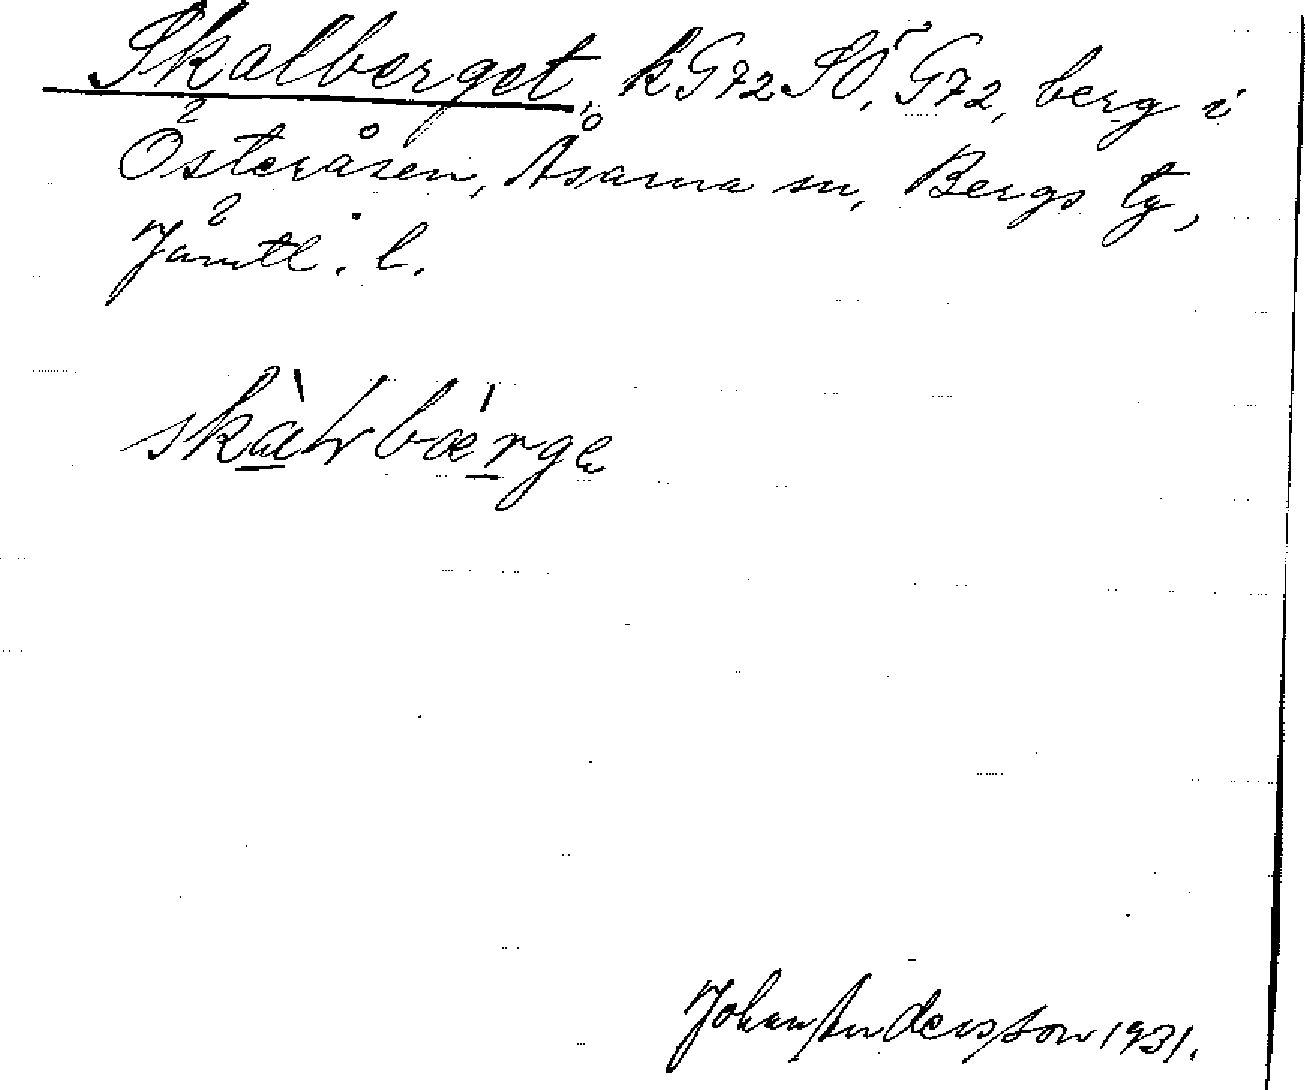 Skalberget, k G 72 SÖ, G 72, berg i
Österåsen, Åsarna sn, Bergs tg,
Jämtl. l.
Johan Andersson 1931.